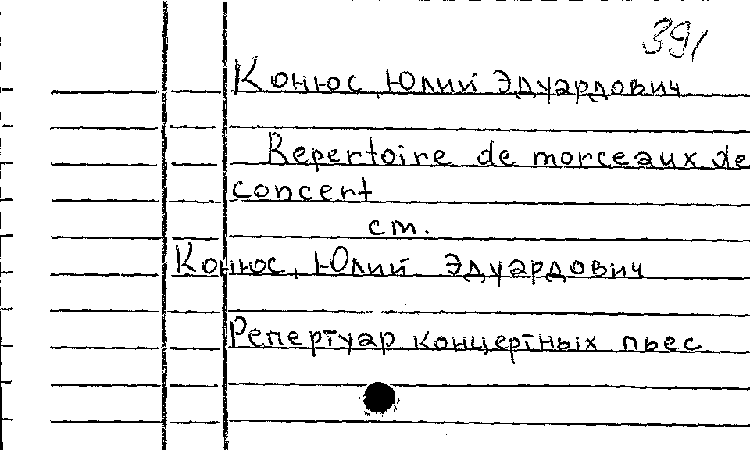 391
Конюс, Юлий Эдуардович
Repertoire de morceaux de
concert
см.
Конюс, Юлий Эдуардович
Репертуар концертных пьес